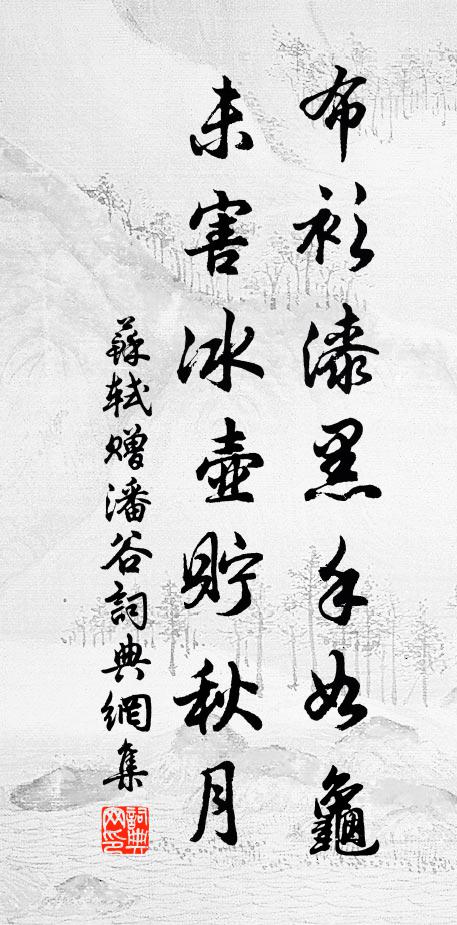 布衫漆黑手如龜
未害冰壺貯秋月
蘇軾贈潘谷詞典網集
詞典網印